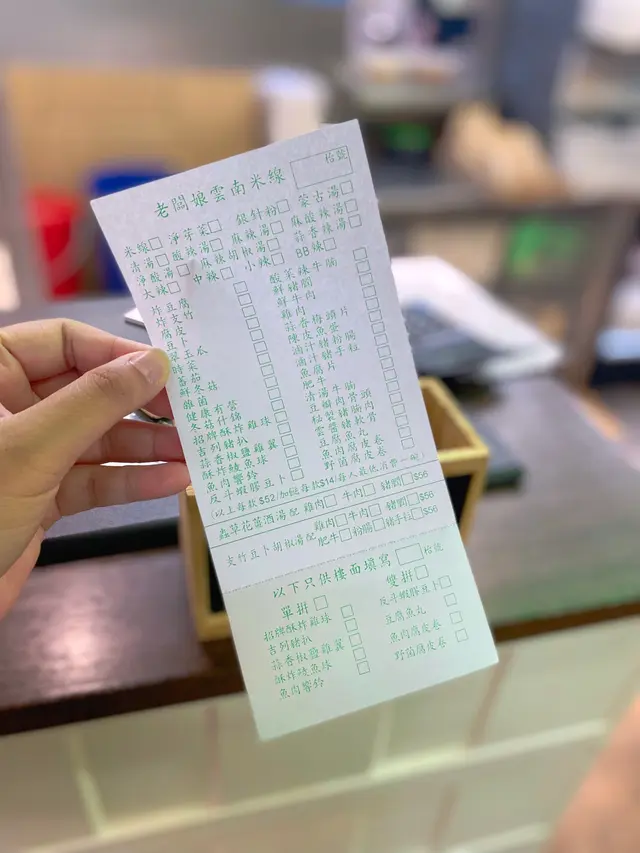 老闆娘雲南米線
枱號
米線 淨芽菜 銀針粉 蒙古湯
清湯 酸辣湯 麻辣湯 麻酸辣湯
淨酸湯 麻辣胡椒湯 蒜香辣湯
大辣 中辣 小辣 BB辣
炸豆腐
炸支竹
腐皮
豆卜
翠玉瓜
時菜
鮮冬菇
雜菌
健康有營
冬菇什錦
招牌酥炸雞球
吉列豬扒
蒜香椒鹽雞翼
酥炸鯪魚球
魚肉響鈴
反斗蝦膠豆卜
酸菜辣牛𦟌
鮮豬𦟌
鮮牛肉
雞肉
蒜香梅頭片
陳皮魚蛋
滷汁豬粉腸
滷汁豬手粒
魚腐片
肥牛
清湯牛𦟌
豆瓣肉骨頭
秘製豬腩肉
雲醬豬軟骨
豆腐魚丸
魚肉腐皮卷
野菌腐皮卷
(以上每款$52/加餸每款$14/每人最低消費一碗)
蟲草花菜酒湯配 雞肉 牛肉 豬𦟌 $56
支竹豆卜胡椒湯配 雞肉 牛肉 豬𦟌 $56
肥牛 粉腸 豬手粒 $56
以下只供樓面填寫 枱號
單拼
招牌酥炸雞球
吉列豬扒
蒜香椒鹽雞翼
酥炸鯪魚球
魚肉響鈴
雙拼
反斗蝦膠豆卜
豆腐魚丸
魚肉腐皮卷
野菌腐皮卷